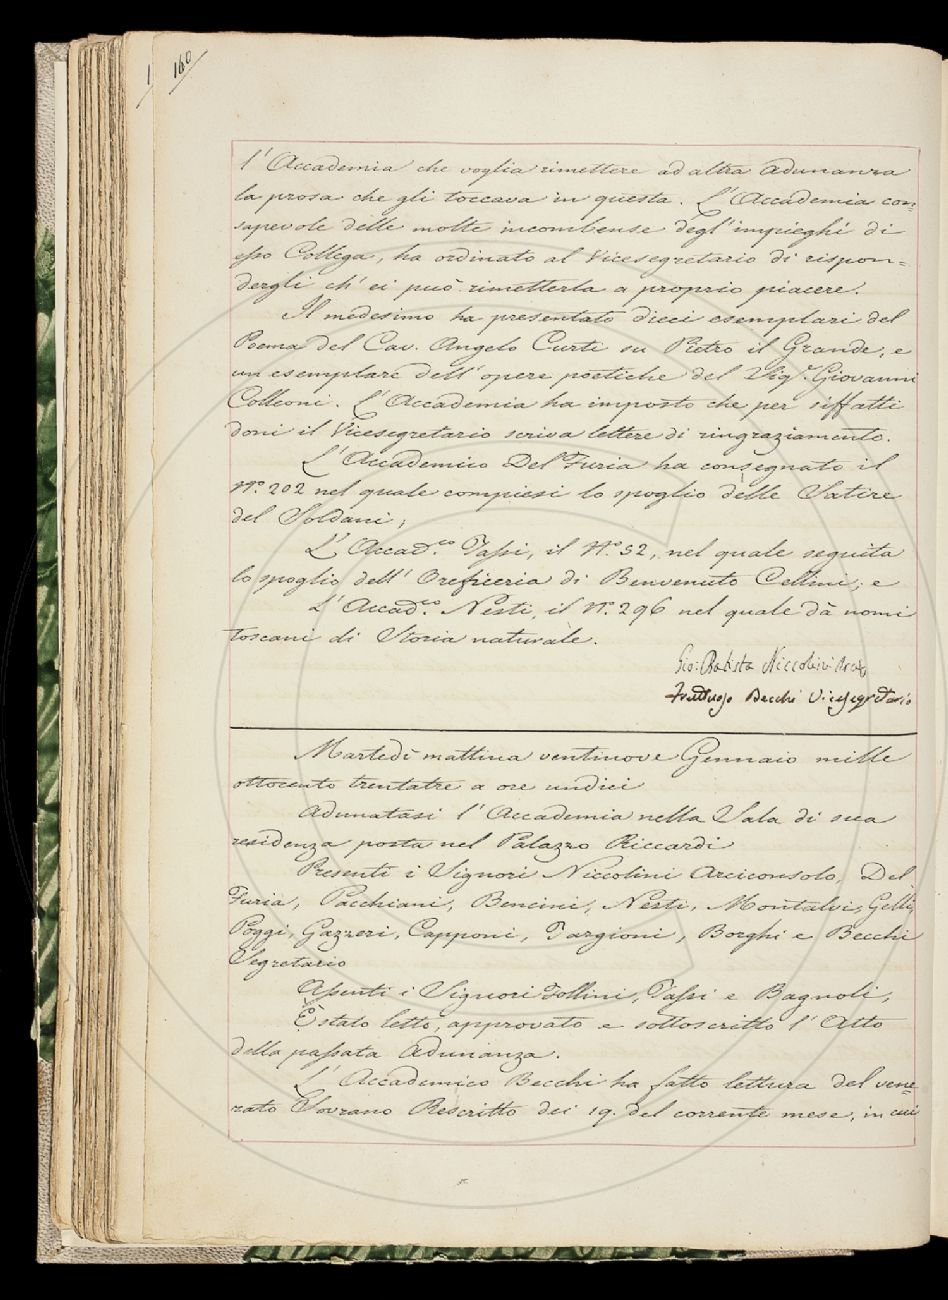 160
l'Accademia che voglia rimettere ad altra adunanza
la prosa che gli toccava in questa. L'Accademia con=
sapevole delle molte incombense degl'impieghi di
esso Collega, ha ordinato al Vicesegretario di rispon-=
dergli ch'ei può rimetterla a proprio piacere.
Il medesimo ha presentato dieci esemplari del
Poema del Cav. Angelo Curti su Pietro il Grande, e
un esemplare dell'opere poetiche del Sigr. Giovanni
Colleoni. L'Accademia ha imposto che per siffatti
doni il Vicesegretario scriva lettere di ringraziamento.
L'Accademico Del Furia ha consegnato il
No. 202 nel quale compiesi lo spoglio delle Satire
del Soldani;
L'Accad.co Tassi, il No. 52, nel quale seguita
lo spoglio dell'Oreficeria di Benvenuto Cellini; e
L'Accad.co Nesti, il No. 296 nel quale dà nomi
toscani di Storia naturale.
Gio: Batista Niccolini Arc.
Fruttuoso Becchi Vicesegretario
Martedì mattina ventinove Gennaio mille
ottocento trentatre a ore undici
Adunatasi l'Accademia nella Sala di sua
residenza posta nel Palazzo Riccardi
Presenti i Signori Niccolini Arciconsolo, Del
Furia, Pacchiani, Bencini, Nesti, Montalvi, Gelli,
Poggi, Gazzeri, Capponi, Targioni, Borghi e Becchi
Segretario
Assenti i Signori Follini, Tassi e Bagnoli,
È stato letto, approvato e sottoscritto l'Atto
della passata Adunanza.
L'Accademico Becchi ha fatto lettura del vene=
rato Sovrano Rescritto dei 19. del corrente mese, in cui